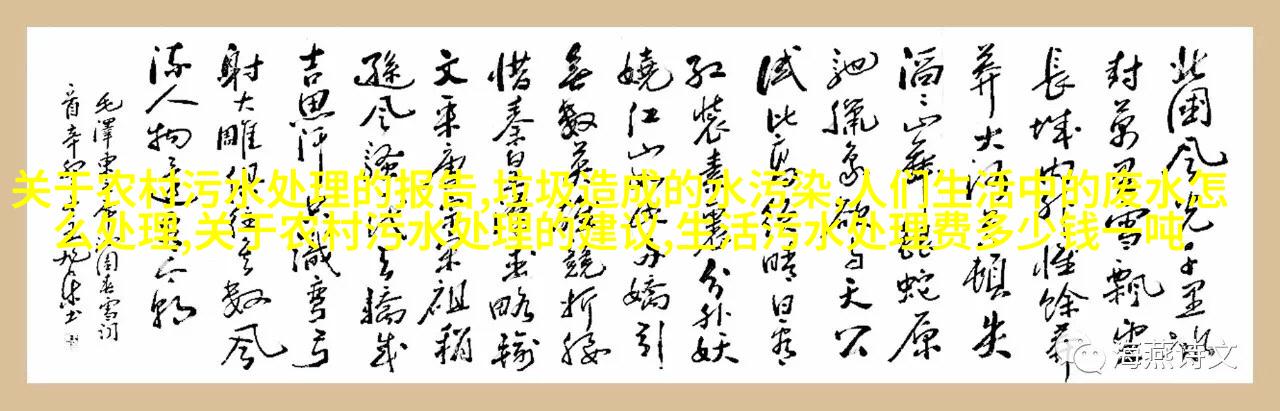 关于农村污水处理的报告,垃圾造成的水污染,人们生活中的废水怎
么处理,关于农村污水处理的建议,生活污水处理费多少钱一吨
北國风光千里冰
封萬里雪飄望
長城内外惟餘莽
莽大河上下頓失
滔滔山舞銀蛇原
馳臘象欲与天公
試比高須晴日看
红裝素裹分外妖
嬈江山如此多嬌引
無數英雄競折腰
惜秦皇漢武略輸
文采唐宗宋祖稍
遜风騷一代天驕成
吉思汗只識彎弓
射大雕俱往矣數风
流人物還看今朝
毛澤東沁園春雪词
海燕诗文